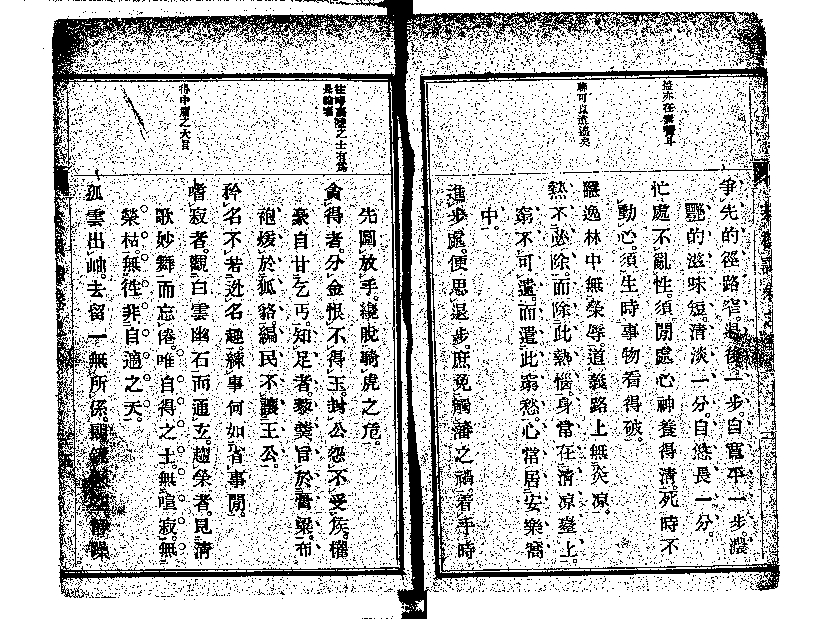 爭先的徑路窄。退後一步。自寬平一步。濃
艷的滋味短。清淡一分。自悠長一分。
忙處不亂性。須閒處心神養得清。死時不
動心。須生時事物看得破。
隱逸林中無榮辱。道義路上無炎凉。
熱不必除。而除此熱惱。身常在清凉臺上。
窮不可遣。而遣此窮愁。心常居安樂窩
中。
進步處便思退步。庶免觸藩之禍。着手時
先圖放手。纔脫騎虎之危。
貪得者。分金恨不得玉。封公怨不受侯。權
豪自甘乞丐。知足者。藜羹旨於膏粱。布
袍煖於狐貉。編民不讓王公。
矜名不若逃名趣。練事何如省事閒。
嗜寂者。觀白雲幽石而通玄。趨榮者。見清
歌妙舞而忘倦。唯自得之士。無喧寂。無
榮枯。無往非自適之天。
孤雲出岫。去留一無所係。靜躁
得中庸之大旨